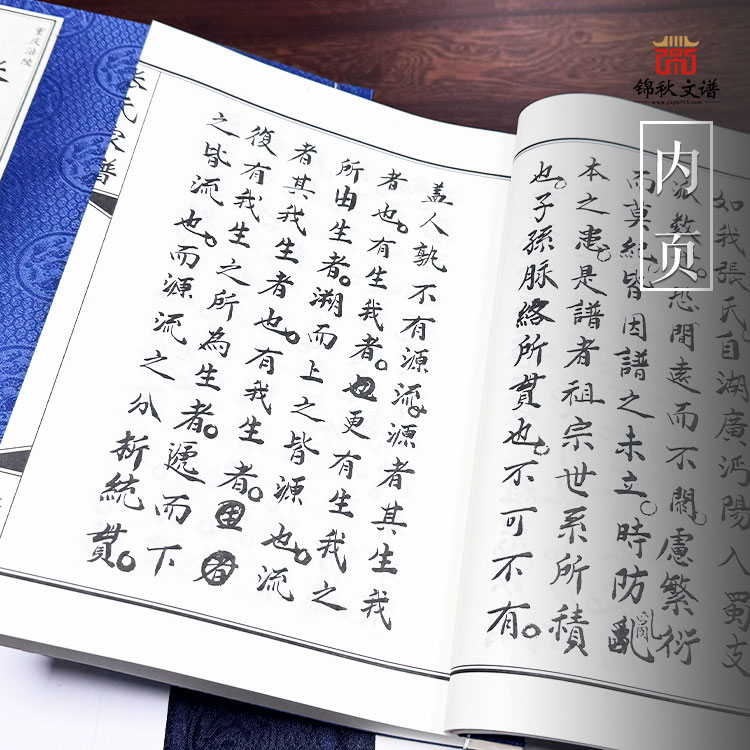 锦秋文谱
内页
重庆涪陵
張氏家譜
如我張氏自湖廣沔陽入蜀支
派繁。恐閒遠而不閱。慮繁衍
而莫紀。皆因譜之未立。時防亂
本之患。是譜者祖宗世系所積
也。子孫脉絡所貫也。不可不有。
盖人孰不有源流。源者其生我
者也。有生我者。更有生我之
所由生者。溯而上之皆源也。流
者其我生者也。有我生者。
復有我生之所為生者。遞而下
之皆流也。而源流之分析統貫。